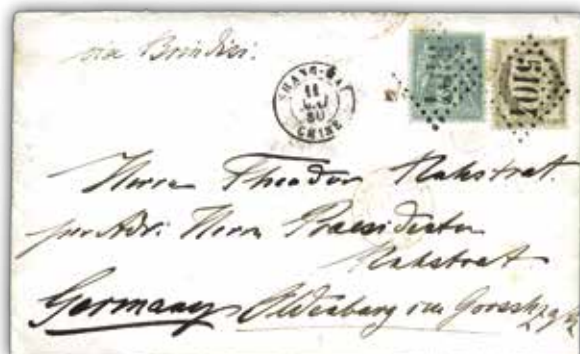 via Brindisi.
SHANG-HAI
11
MAI
80
CHINE
5104
Herrn Theodor Rahstrat.
per Adr. Herrn Praesidenten
Rahstrat
Germany Oldenburg im Grossh